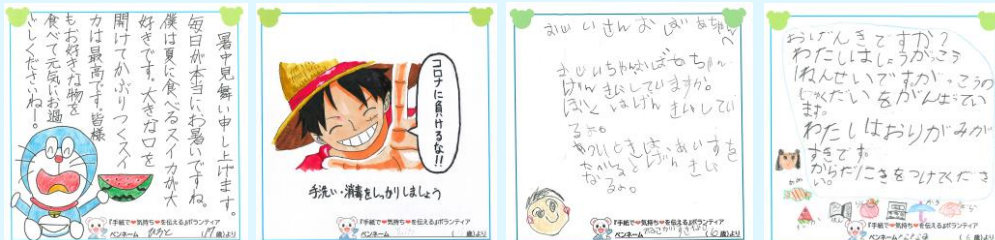 暑中見舞い申し上げます。
毎日が本当にお暑いですね。
僕は夏に食べるスイカが大
好きです。大きな口を
開けてかぶりつくスイ
カは最高です。皆様
もお好きな物を
食べて元気にお過
ごしくださいねー。
『手紙で❤気持ち❤を伝える』ボランティア
ペンネーム ひろと (17歳)より
コロナに負けるな!!
手洗い・消毒をしっかりしましょう
『手紙で❤気持ち❤を伝える』ボランティア
ペンネーム ( 歳)より
おじいさんおばあちゃんへ
おじいちゃんおばあちゃん
げんきにしていますか。
ぼくはげんきにしてい
るよ。
あついときは、あいすを
たべるとげんきに
なるよ。
『手紙で❤気持ち❤を伝える』ボランティア
ペンネーム ( 歳)より
おげんきですか?
わたしはしょうがっこう
1ねんせいですが、がっこうの
しゅくだいをがんばってい
ます。
わたしはおりがみが
すきです。
からだにきをつけてくださ
い。
『手紙で❤気持ち❤を伝える』ボランティア
ペンネーム (6歳)より